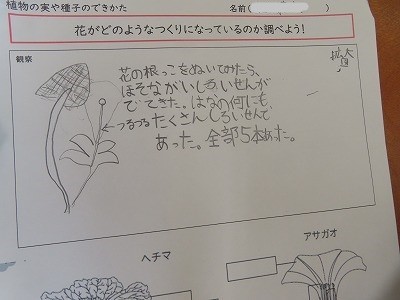 植物の実や種子のできかた
名前(
花がどのようなつくりになっているのか調べよう!
観察
拡大図
花の根っこをぬいてみたら、
ほそながいしろいせんが
でてきた。はなの何にも、
つるつる
たくさんしろいせんで
あった。全部5本あった。
ヘチマ
アサガオ